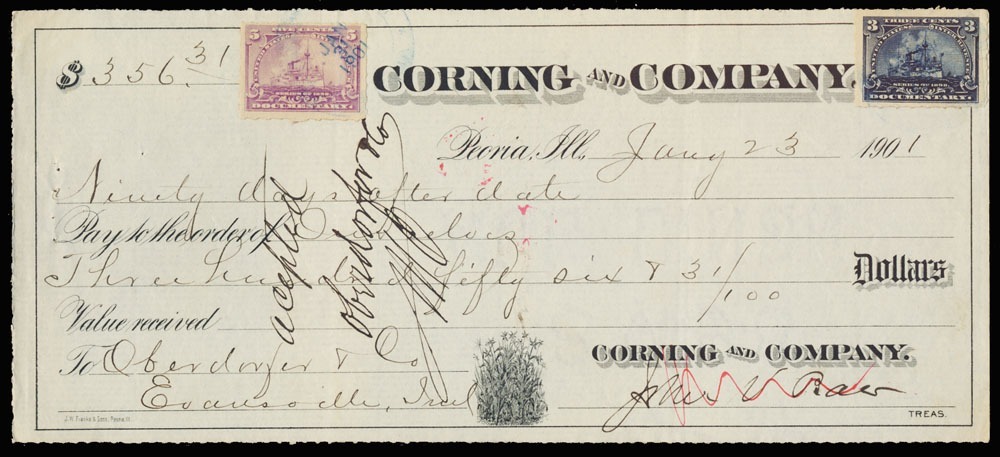 $ 356.31
5 FIVE CENTS 5
SERIES OF 1898
DOCUMENTARY.
JAN
1901
3 THREE CENTS 3
SERIES OF 1898
DOCUMENTARY.
CORNING AND COMPANY.
Peoria, Ill., Jany 23 1901
Ninety days after date
Pay to the order of Ourselves
Three hundred & fifty six & 31/100 Dollars
Value received
To Oberdorfer & Co
Evansville, Ind
accepted
Oberdorfer & Co
CORNING AND COMPANY.
TREAS.
J.W. Franks & Sons, Peoria, Ill.